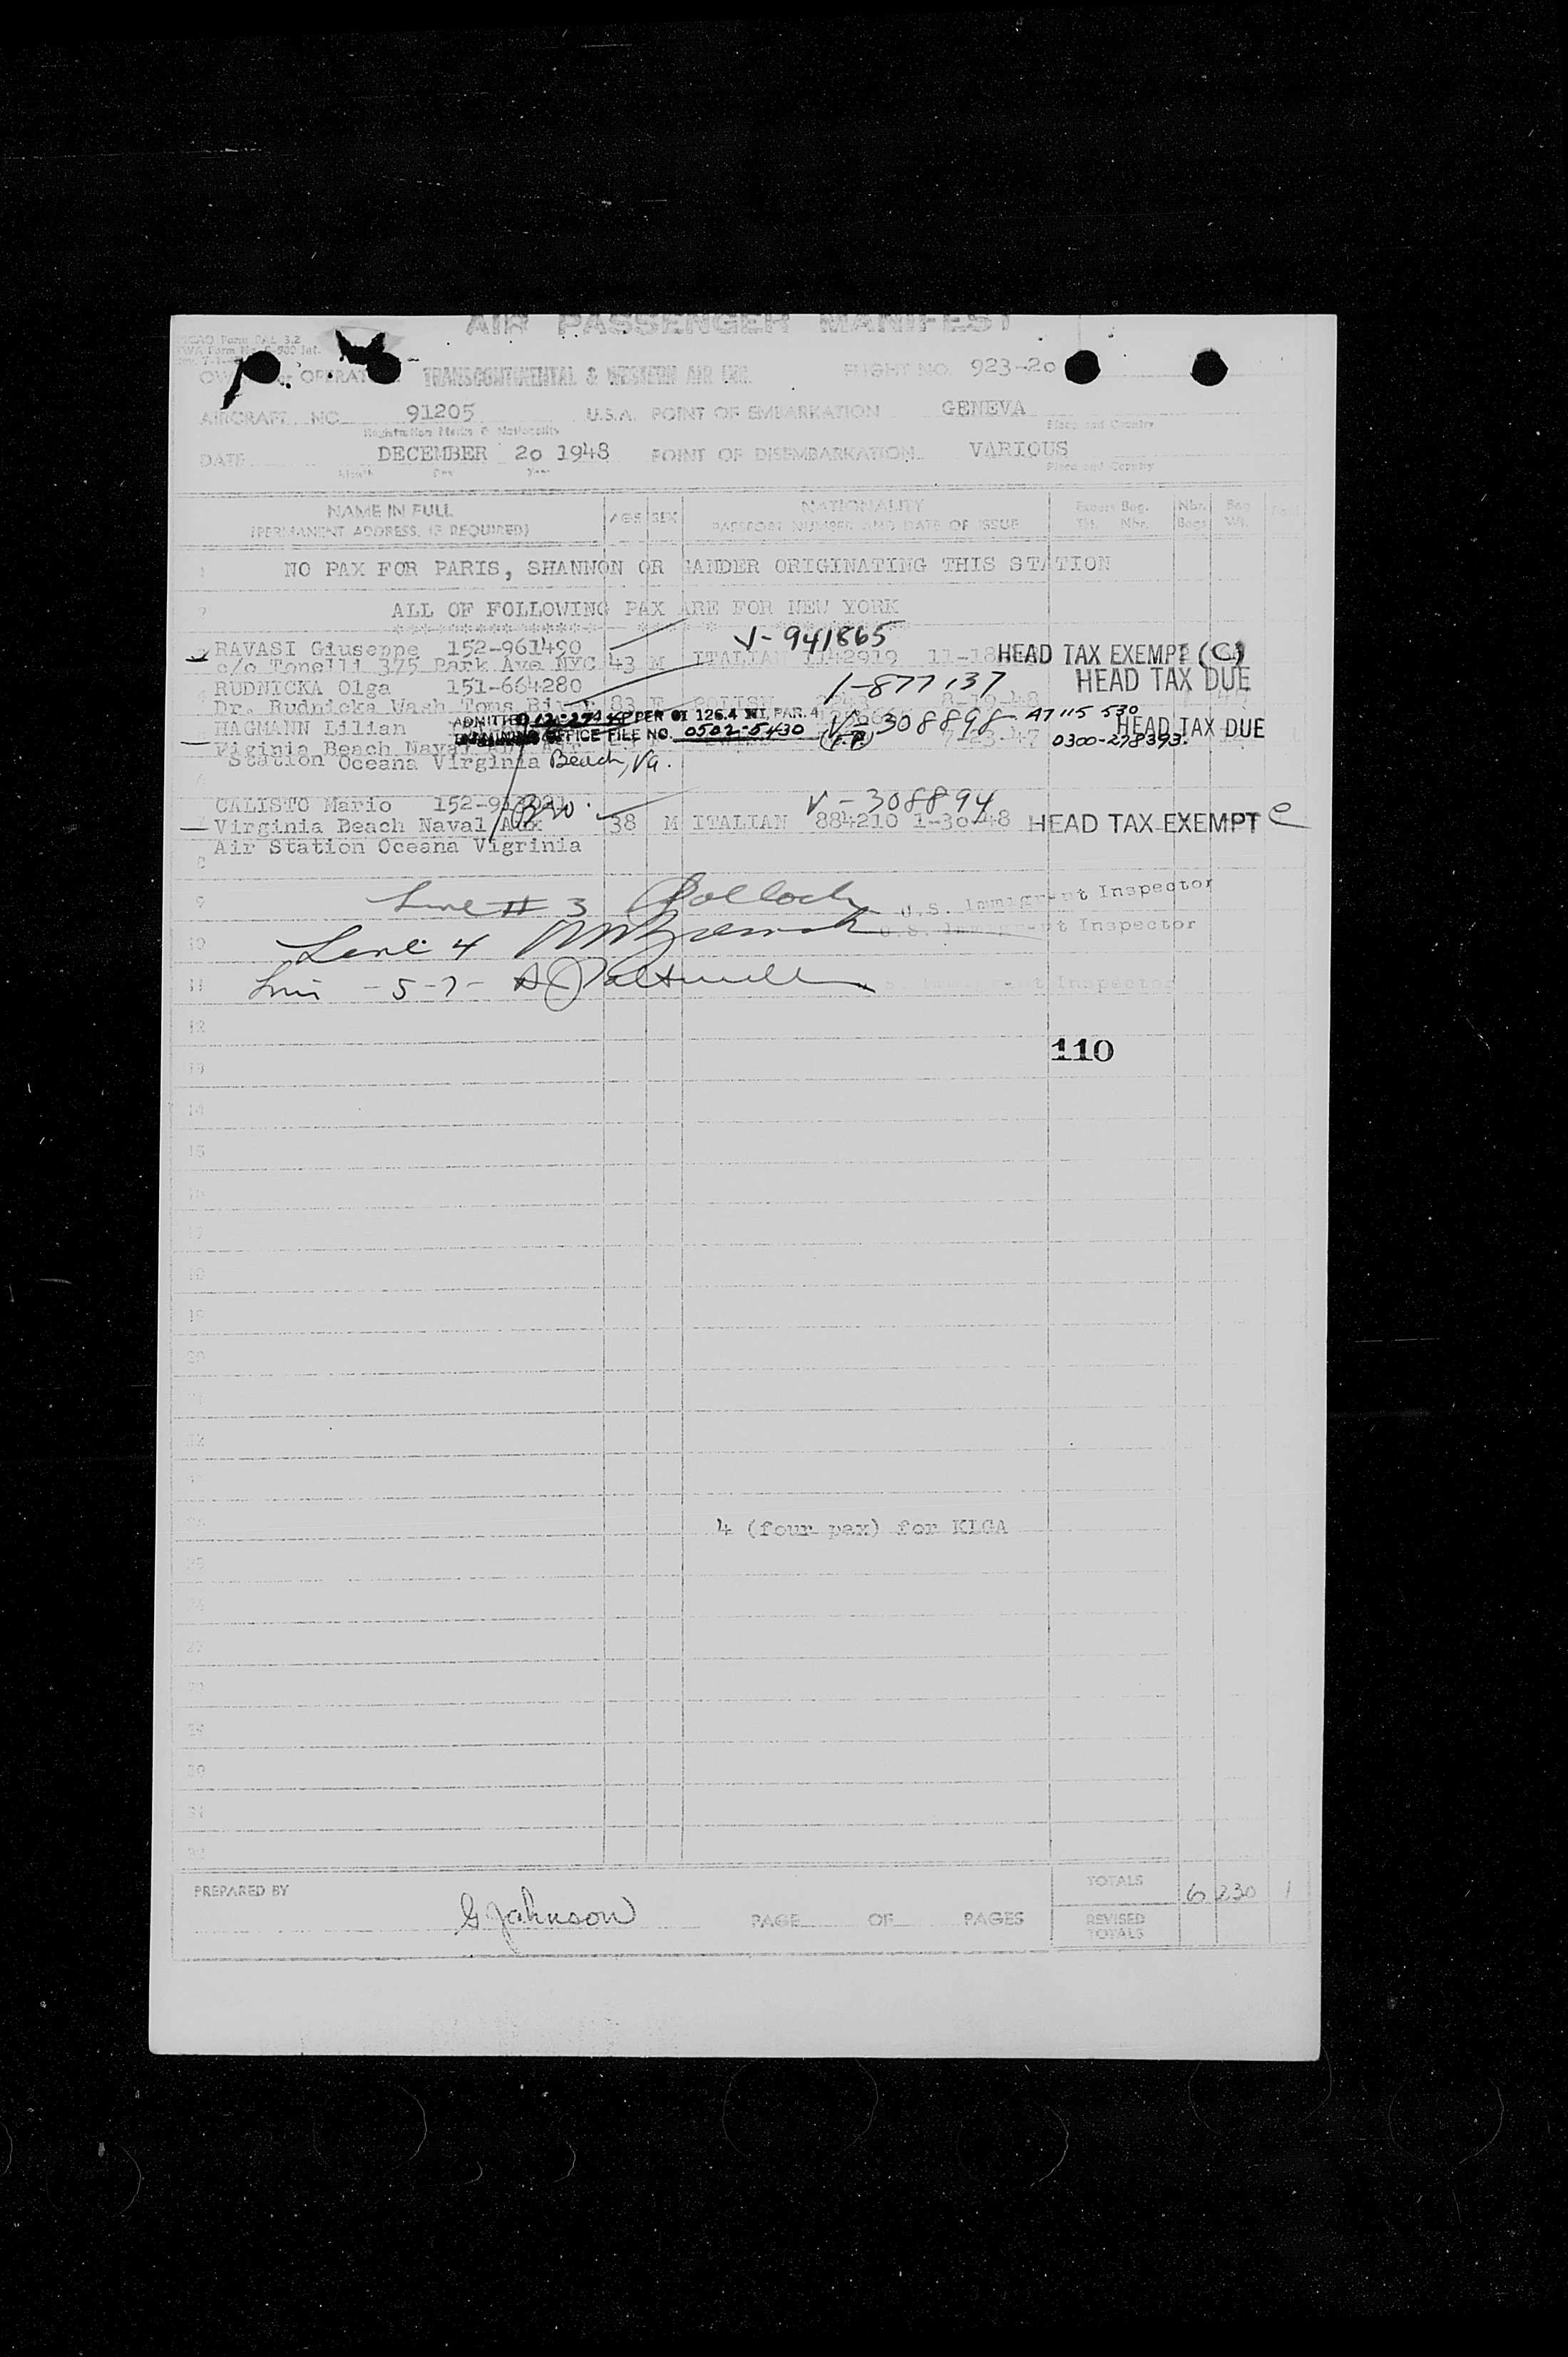 AIR PASSENGER MANIFEST
ICAO Form PAL 3.2
TWA Form No. Int.
OWNER or OPERATOR TRANSCONTINENTAL & WESTERN AIR INC. FLIGHT NO. 923-20
AIRCRAFT NO. 91205 U.S.A. POINT OF EMBARKATION GENEVA
Registration Marks & Nationality Place and Country
DATE DECEMBER 20 1948 POINT OF DISEMBARKATION VARIOUS
Month Day Year Place and Country
NAME IN FULL AGE SEX NATIONALITY Excess Bag. Nbr. Bag
(PERMANENT ADDRESS, IF REQUIRED) PASSPORT NUMBER AND DATE OF ISSUE Tkt. Nbr. Bags Wt.
1 NO PAX FOR PARIS, SHANNON OR GANDER ORIGINATING THIS STATION
2 ALL OF FOLLOWING PAX ARE FOR NEW YORK
V-941865
3 RAVASI Giuseppe 152-961490
c/o Tonelli 375 Park Ave NYC 43 M ITALIAN 1142919 11-18 HEAD TAX EXEMPT (C)
4 RUDNICKA Olga 151-664280 1-877137 HEAD TAX DUE
Dr. Rudnicka Wash Tons 83 F POLISH 8-19-48
HAGMANN Lilian ADMITTED PER OI 126.4 PAR. 4 V-308898 A7115 530 HEAD TAX DUE
OFFICE FILE NO. 0502-5430 (P.P.) 7-23-47 0300-278393.
Figinia Beach Naval
Station Oceana Virginia Beach, Va.
CALISTO Mario 152- V-308894
7 Virginia Beach Naval Aux 38 M ITALIAN 884210 1-30-48 HEAD TAX EXEMPT C
8 Air Station Oceana Vigrinia
9 Line # 3 U.S. Immigrant Inspector
10 Line 4 U.S. Immigrant Inspector
11 Line -5-7- Inspector
12
13 110
14
15
16
17
18
19
20
21
22
23
24 4 (four pax) for KLGA
25
26
27
28
29
30
31
32
PREPARED BY G. Johnson PAGE OF PAGES
TOTALS 6 230 1
REVISED TOTALS